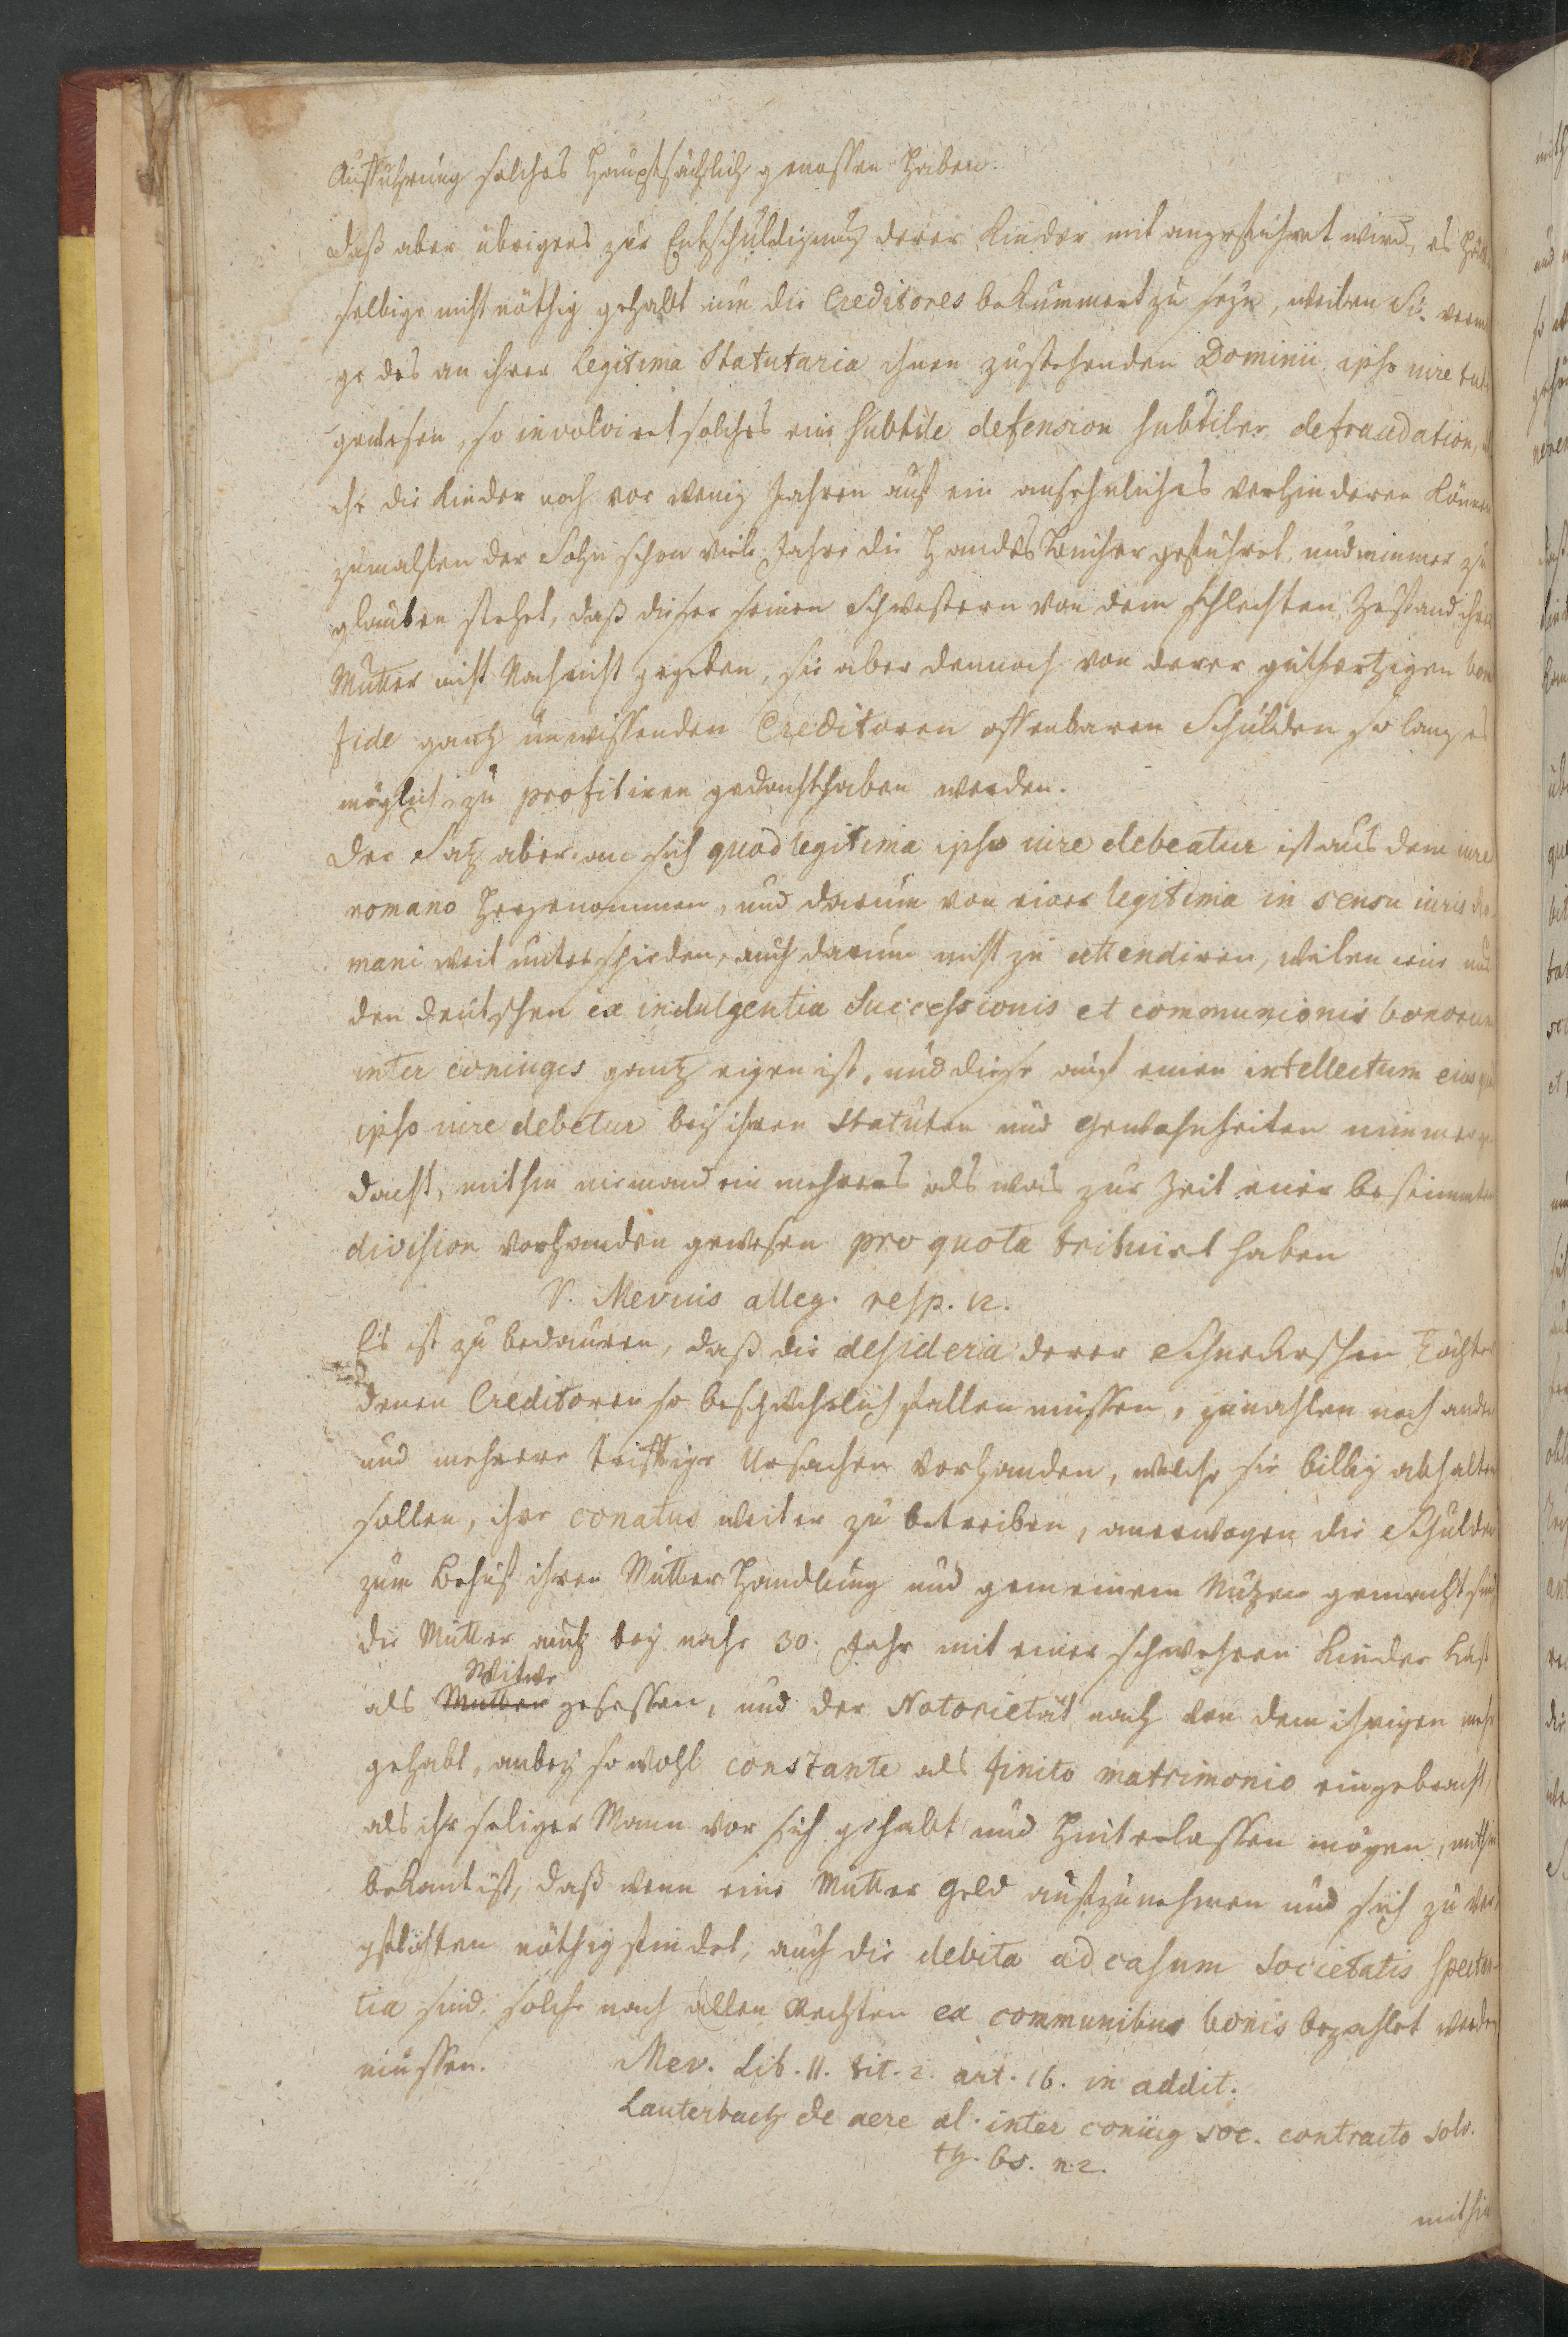 Aufführung solches Hauptsächlich genossen haben.
Daß aber übrigens zur Entschuldigung derer Kinder mit angeführet wird, es
selbige nicht nöthig gehabt um die Creditores bekümmert zu seyn, weilen Sie
ge des an ihrer Legitima Statutaria ihnen zustehenden Dominii ipso iure
gewesen, so involviret solches eine subtile defension subtiler defraudation,
che die Kinder noch vor wenig Jahren auf ein ansehnliches verhinderen können
zumahlen der Sohn schon viele Jahre die Handels Bücher geführet, und nimmer zu
glauben stehet, daß dieser seinen Schwestern von dem schlechten Zustand ihrer
Mutter nicht Nachricht gegeben, sie aber dennoch von derer gutherzigen bona
fide gantz unwissenden Creditoren offenbaren Schulden so lang es
möglich zu profitiren gedacht haben werden.
Der Satz aber an sich quod legitima ipso iure debeatur ist aus dem iure
romano hergenommen, und darum von einer legitima in sensu iuris
mani weit unterschieden, auch darum nicht zu attendiren, weilen eine
den Deutschen ex indulgentia successionis et communionis bonorum
inter coniuges gantz eigen ist, und diese auf einen intellectum eius
ipso iure debetur bey ihren Statuten und Gewohnheiten nimmer
dacht, mithin niemand ein mehreres als was zur Zeit einer bestimmten
division vorhanden gewesen pro quota tribuiret haben
V. Mevius alleg. resp. n.
Es ist zu bedauren, daß die desideria derer Schuckischen Töchter
denen Creditoren so beschwehrlich fallen müssen, zumahlen noch andere
und mehrere triftige Ursachen vorhanden, welche sie billig abhalten
sollen, ihre conatus weiter zu betreiben, anerwogen die Schulden
zum Behuf ihrer Mutter Handlung und gemeinem Nutzen gemacht sind
die Mutter auch bey nahe 30. Jahr mit einer schwehren Kinder Last
als Mutter Witwe gesessen, und der Notorietät nach von dem ihrigen mehr
gehabt, anbey so wohl constante als finito matrimonio eingebracht,
als ihr seliger Mann vor sich gehabt und hinterlassen mögen, mithin
bekant ist, daß wenn eine Mutter Geld aufzunehmen und sich zu ver-
pflichten nöthig findet, auch die debita ad casum societatis spectan-
tia sind, solche nach allen Rechten ex communibus bonis bezahlet werden
müssen. Mev. Lib. II. tit. 2. art. 16. in addit.
Lauterbach de aere al. inter coniug soc. contracto solv.
th. 65. n. 2.
mithin